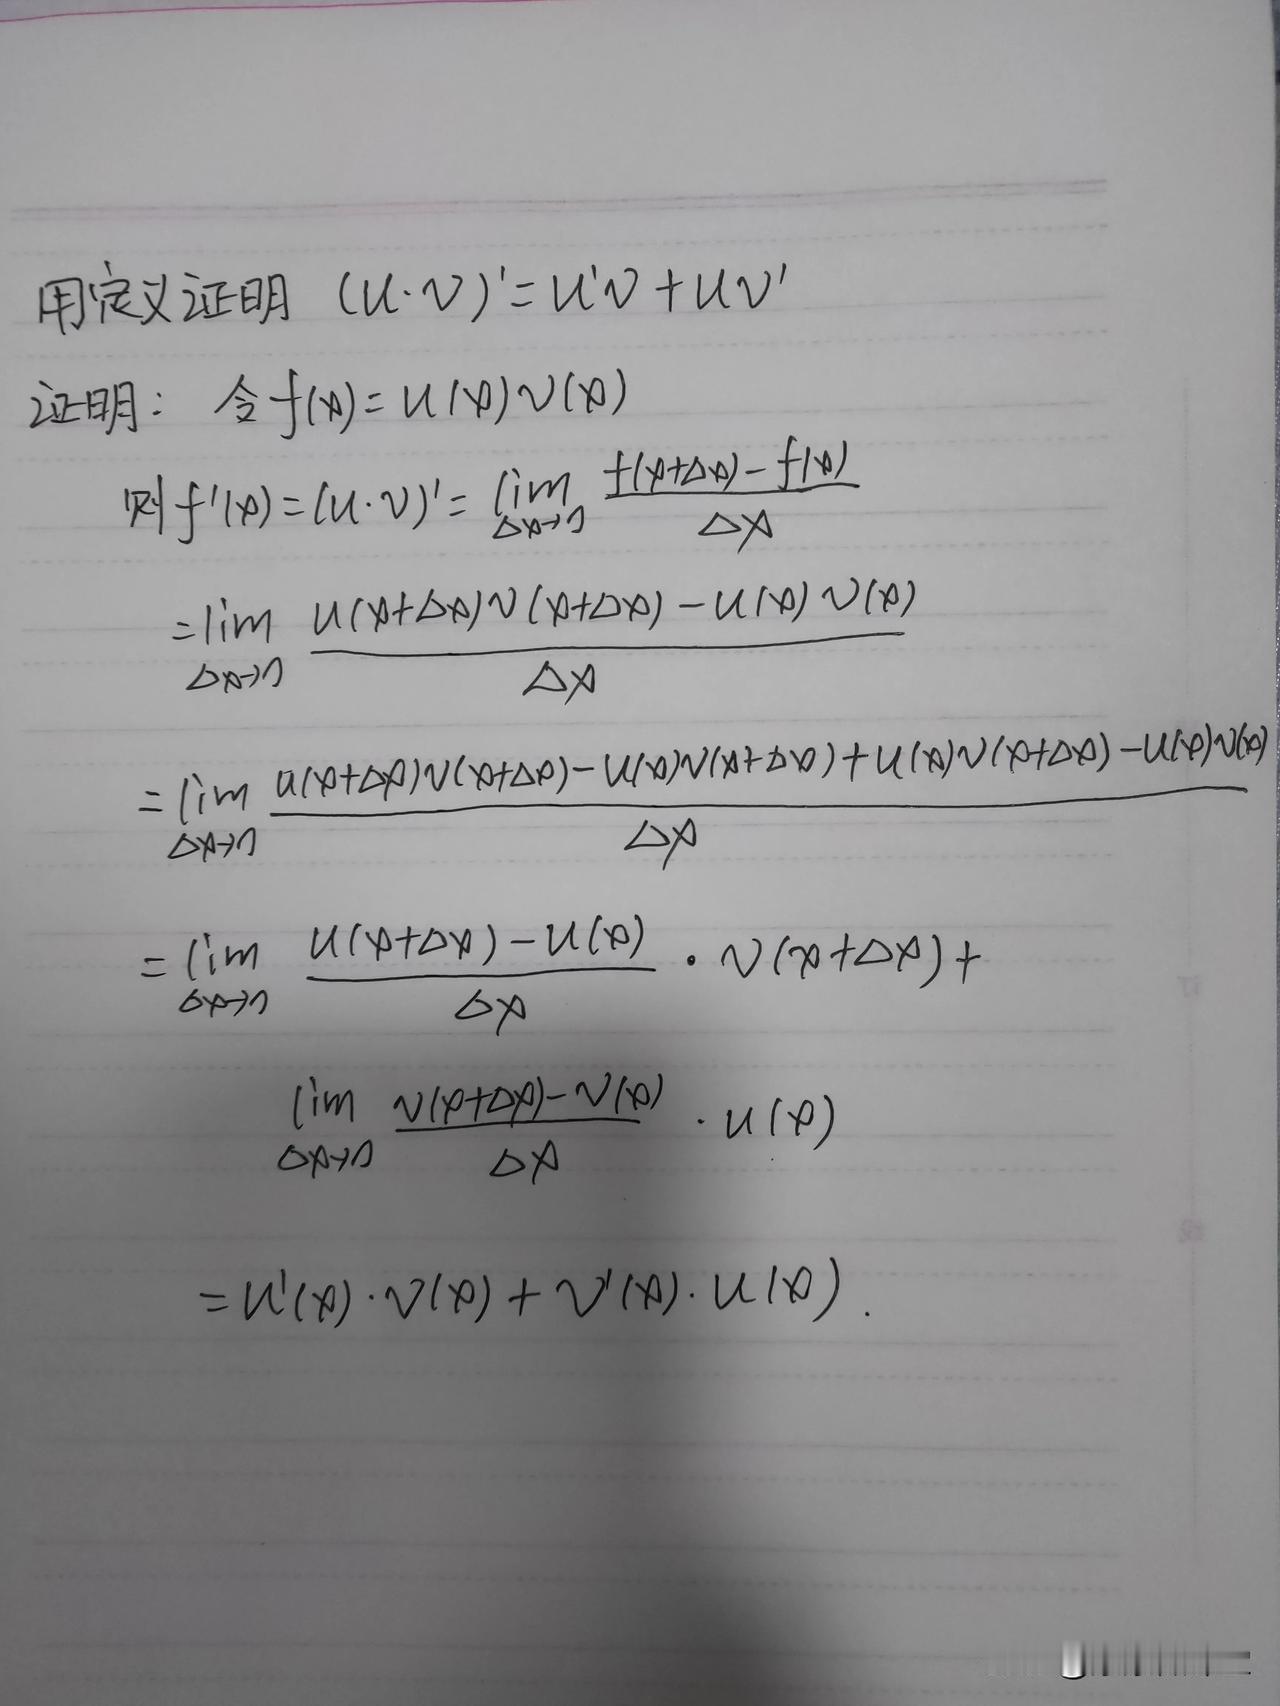 用定义证明 (u·v)'=u'v+uv'
证明: 令f(x)=u(x)v(x)
则f'(x)=(u·v)'=lim Δx→0 f(x+Δx)-f(x) / Δx
=lim Δx→0 u(x+Δx)v(x+Δx)-u(x)v(x) / Δx
=lim Δx→0 u(x+Δx)v(x+Δx)-u(x)v(x+Δx)+u(x)v(x+Δx)-u(x)v(x) / Δx
=lim Δx→0 u(x+Δx)-u(x) / Δx · v(x+Δx)+
lim Δx→0 v(x+Δx)-v(x) / Δx · u(x)
=u'(x)·v(x)+v'(x)·u(x).